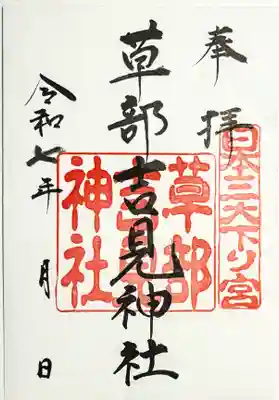 奉拝
日本三大下り宮
草部吉見神社
草部吉見神社
令和七年 月 日